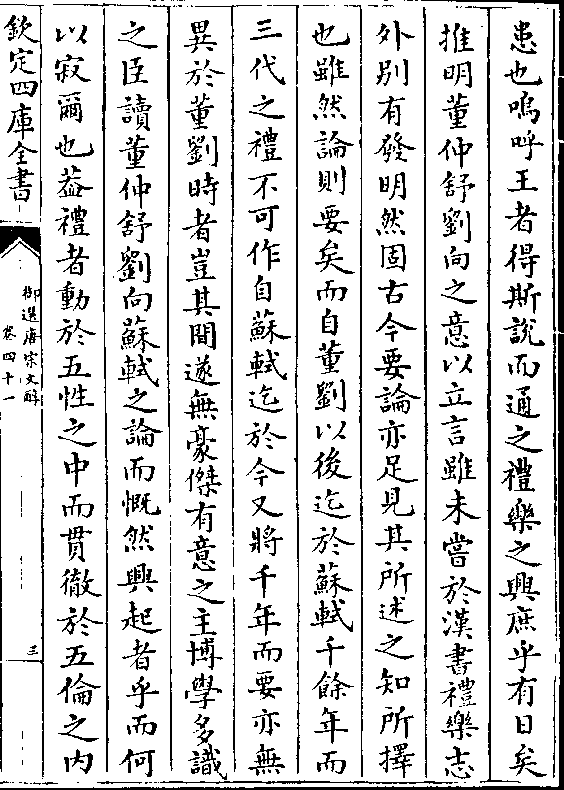 患也嗚呼王者得斯說而通之禮樂之興庶乎有日矣
推明董仲舒劉向之意以立言雖未嘗於漢書禮樂志
外別有發明然固古今要論亦足見其所述之知所擇
也雖然論則要矣而自董劉以後迄於蘇軾千餘年而
三代之禮不可作自蘇軾迄於今又將千年而要亦無
異於董劉時者豈其間遂無豪傑有意之主博學多識
之臣讀董仲舒劉向蘇軾之論而慨然興起者乎而何
以寂爾也葢禮者動於五性之中而貫徹於五倫之内
欽定四庫全書
御選唐宋文醇
卷四十一
三